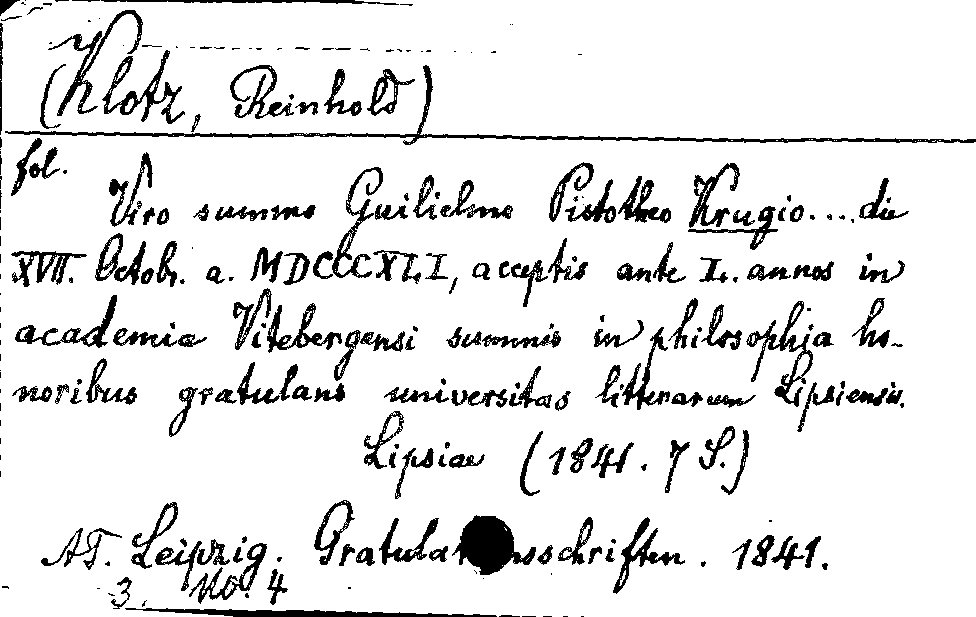 (Klotz, Reinhold)
fol.
Viro summo Guilielmo Pistotheo Krugio.... die
XVII. Octobr. a. MDCCCXLI, acceptis ante L. annos in
academia Vitebergensi summis in philosophia ho-
noribus gratulans universitas litterarum Lipsiensis.
Lipsiae (1841. 7 S.)
AT. Leipzig. Gratulationsschriften. 1841.
3. No. 4